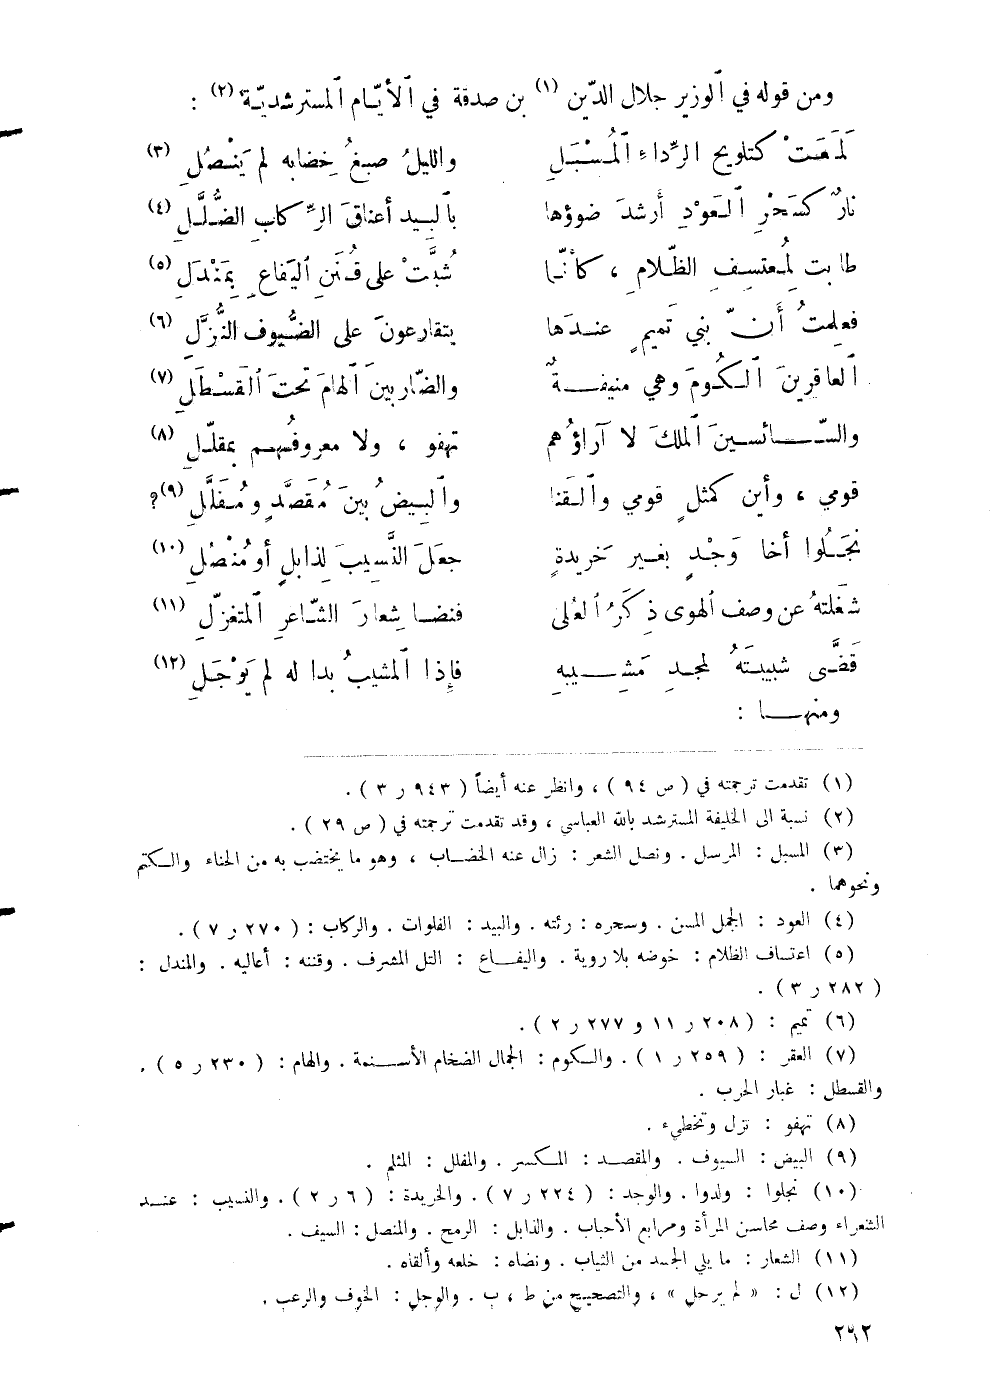 ومن قوله في ٱلوزير جلال الدّين (١) بن صدقة في ٱلأيّام ٱلمسترشديّة (٢) :
لَمَعَتْ كتلويح الرِّداءِ ٱلْمُسْبَلِ والليلُ صبغُ خِضابه لم يَنْصُلِ (٣)
نارٌ كسَحْرِ ٱلعَوْدِ أَرشدَ ضوؤها بٱلبيد أعناقَ الرِّكابِ الضُّلَّلِ (٤)
طابت لِمُعتسِفِ الظّلامِ ، كأنّما شُبَّتْ على قُنَنِ ٱليَفاعِ بِمَنْدَلِ (٥)
فعلِمتُ أَنّ بني تَميمٍ عندَها يتقارعونَ على الضُّيوف النُّزَّلِ (٦)
ٱلعاقرينَ ٱلكُومَ وهي منيفةٌ والضّاربينَ ٱلهامَ تحتَ ٱلقَسْطَلِ (٧)
والسّائسينَ ٱلملكَ لا آراؤُهم تهفو ، ولا معروفُهم بمقلّلِ (٨)
قومي ، وأين كمثلِ قومي وٱلقنا وٱلبِيضُ بينَ مُقَصَّدٍ ومُفَلَّلِ (٩)؟
نَجَلُوا أخا وَجْدٍ بغير خَريدةٍ جعَلَ النَّسِيبَ لِذابلٍ أو مُنْصُلِ (١٠)
شغَلتهُ عن وصف ٱلهوى ذِكَرُ ٱلعُلى فنضا شِعارَ الشّاعرِ ٱلمتغزّلِ (١١)
قَضَّى شبيبتَهُ لمجدِ مَشِيبهِ فإذا ٱلمشيبُ بدا له لم يَوْجَلِ (١٢)
ومنها :
(١) تقدمت ترجمته في ( ص ٩٤ ) ، وانظر عنه أيضاً ( ٩٤٣ ر ٣ ) .
(٢) نسبة الى الخليفة المسترشد بالله العباسي ، وقد تقدمت ترجمته في ( ص ٢٩ ) .
(٣) المسبل : المرسل . ونصل الشعر : زال عنه الخضاب ، وهو ما يختضب به من الحناء والكتم
ونحوهما .
(٤) العود : الجمل المسن . وسحره : رئته . والبيد : الفلوات . والركاب : ( ٢٧٠ ر ٧ ) .
(٥) اعتساف الظلام : خوضه بلا روية . واليفاع : التل المشرف . وقننه : أعاليه . والمندل :
( ٢٨٢ ر ٣ ) .
(٦) تميم : ( ٢٠٨ ر ١١ و ٢٧٧ ر ٢ ) .
(٧) العقر : ( ٢٥٩ ر ١ ) . والكوم : الجمال الضخام الأسنمة . والهام : ( ٢٣٠ ر ٥ ) .
والقسطل : غبار الحرب .
(٨) تهفو : تزل وتخطيء .
(٩) البيض : السيوف . والمقصد : المكسر . والمفلل : المثلم .
(١٠) نجلوا : ولدوا . والوجد : ( ٢٢٤ ر ٧ ) . والخريدة : ( ٦ ر ٢ ) . والنسيب : عند
الشعراء وصف محاسن المرأة ومرابع الأحباب . والذابل : الرمح . والمنصل : السيف .
(١١) الشعار : ما يلي الجسد من الثياب . ونضاه : خلعه وألقاه .
(١٢) ل : « لم يرحل » ، والتصحيح من ط ، ب . والوجل : الخوف والرعب .
٢٩٢